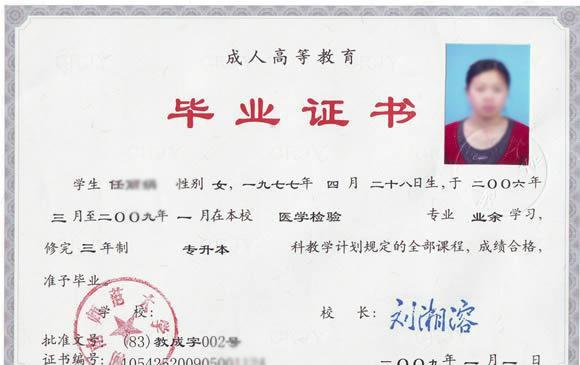 成人高等教育
毕业证书
学生 任 性别 女,一九七七年 四 月 二十八日生,于 二〇〇六年
三 月至二〇〇九年 一 月在本校 医学检验 专业 业余 学习,
修完 三年制 专升本 科教学计划规定的全部课程,成绩合格,
准予毕业。
学 校: 校 长: 刘湘溶
批准文号: (83) 教成字002号
证书编号: 105425200905001124 二〇〇九年 一 月 一 日